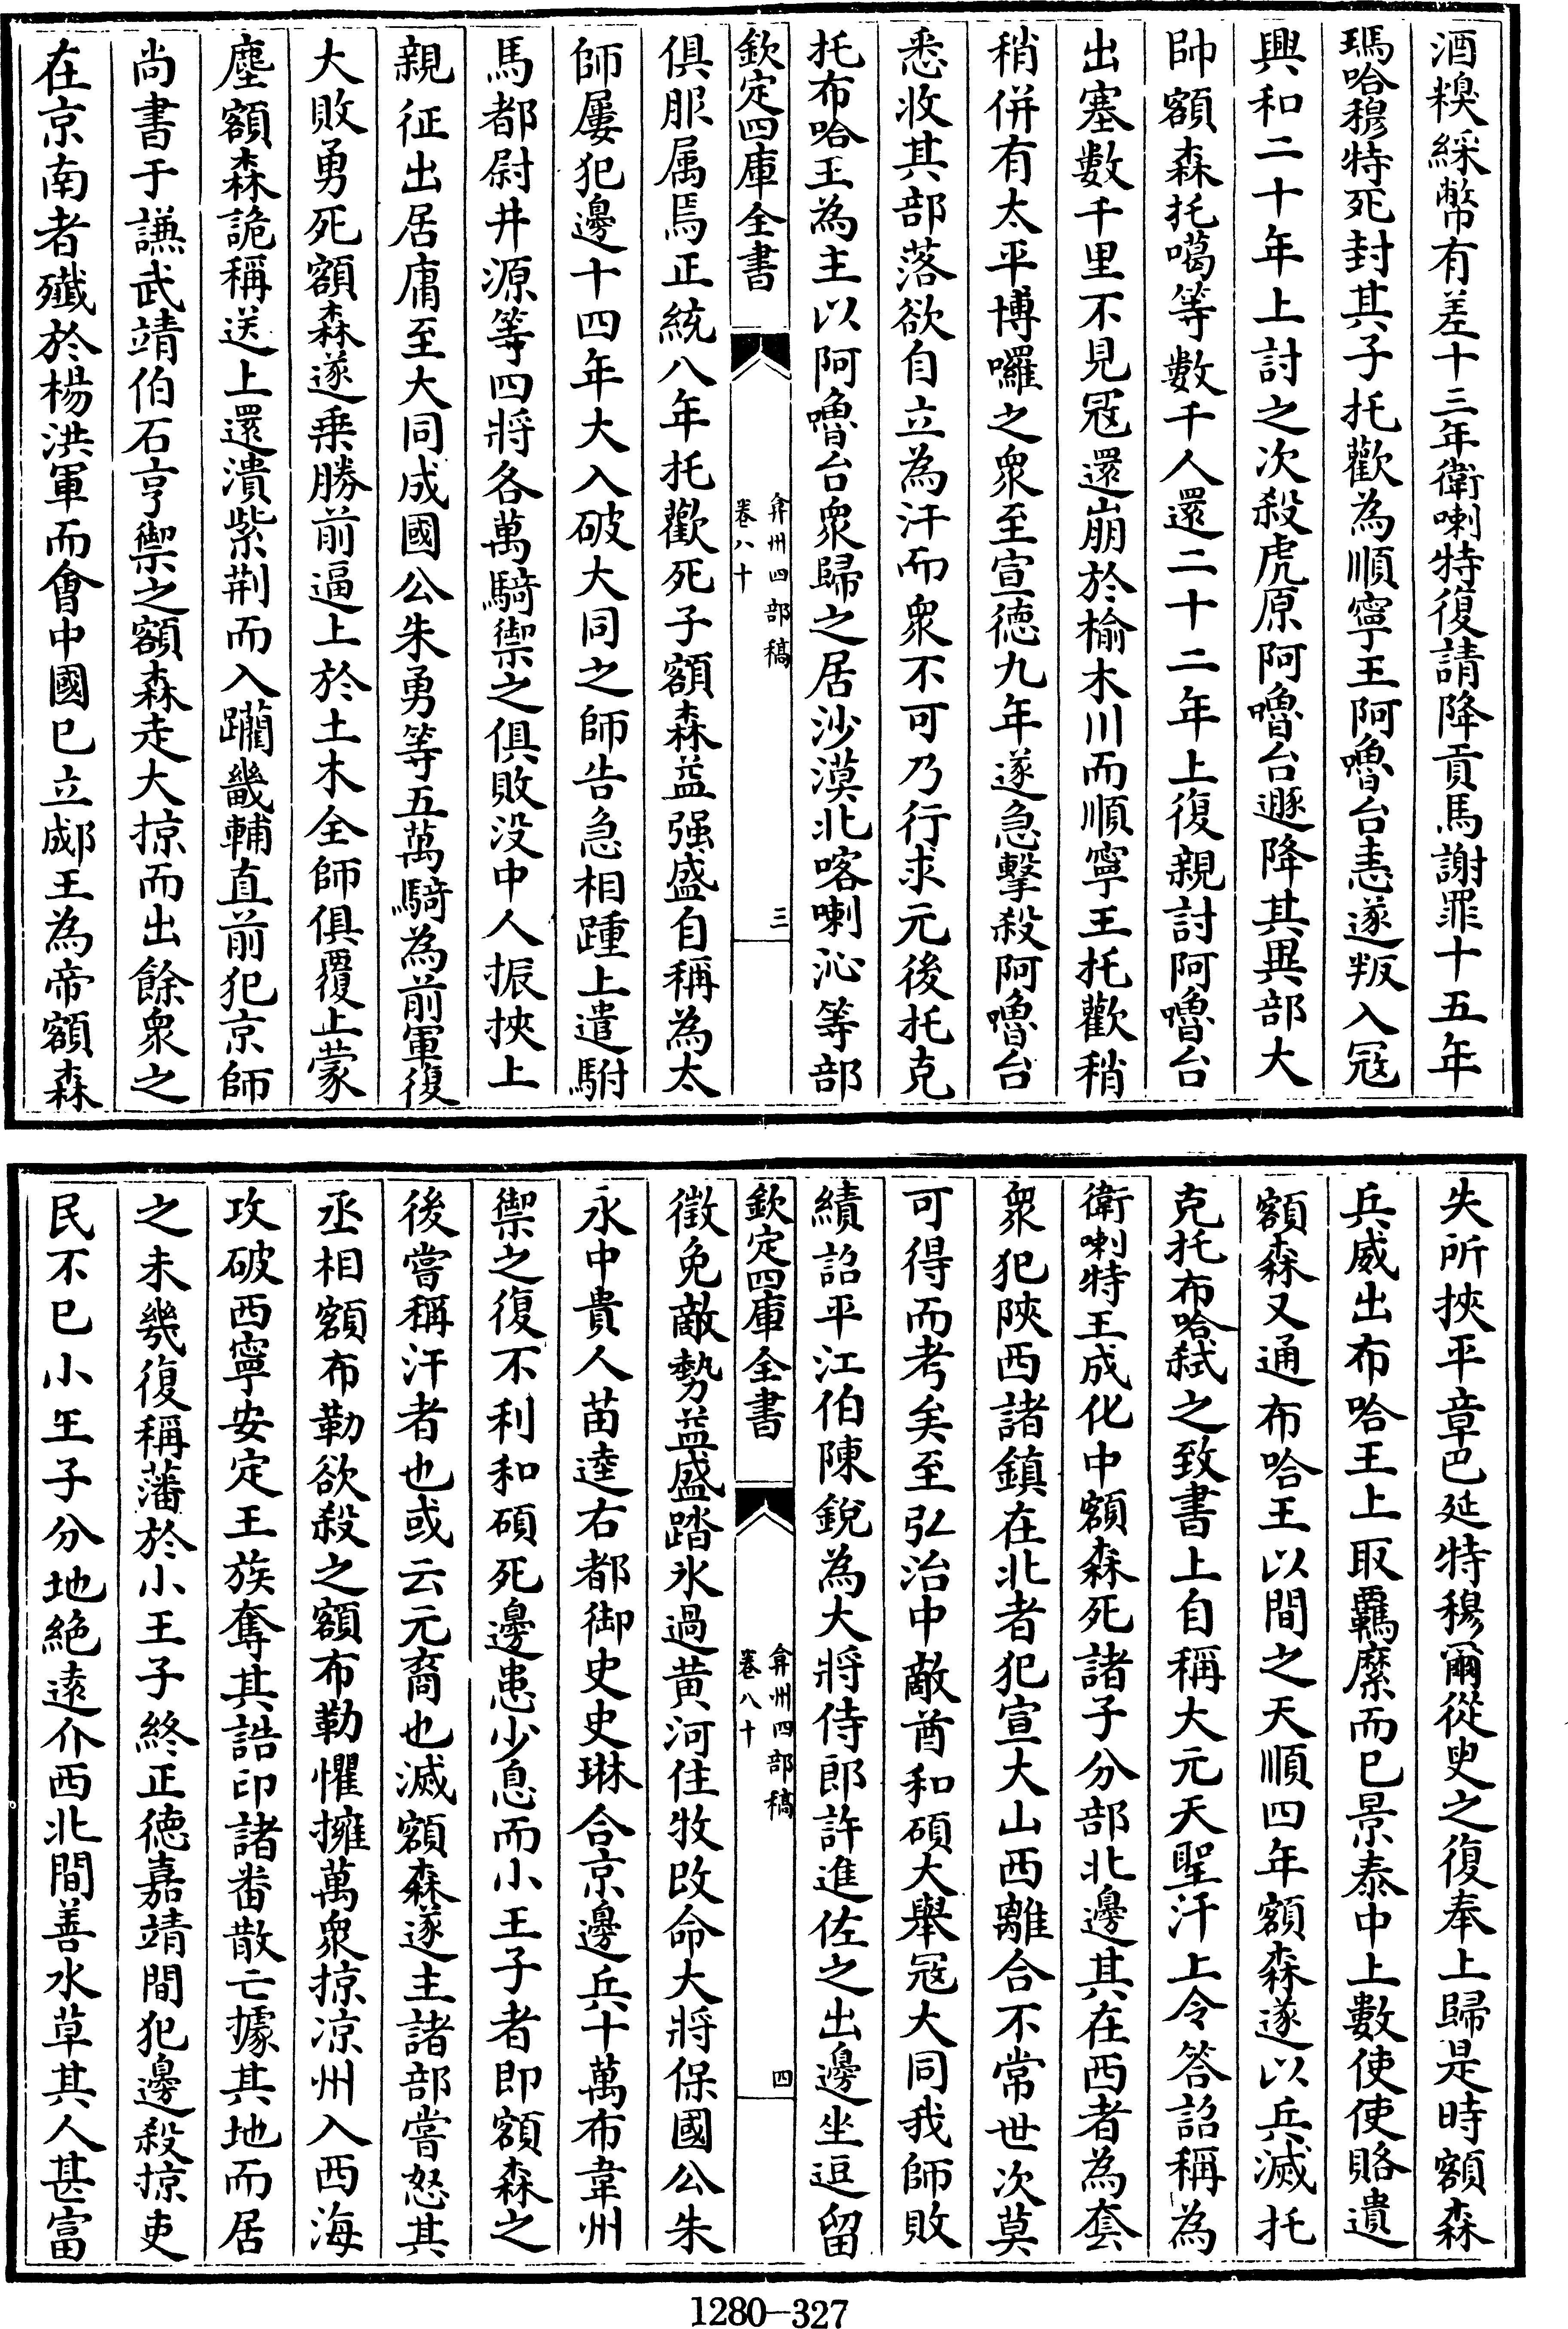 酒糗綵幣有差十三年衛喇特復請降貢馬謝罪十五年
瑪哈穆特死封其子托歡為順寧王阿嚕台恚遂叛入冦
興和二十年上討之次殺虎原阿嚕台遯降其異部大
帥額森托噶等數千人還二十二年上復親討阿嚕台
出塞數千里不見冦還崩於榆木川而順寧王托歡稍
稍併有太平博囉之衆至宣德九年遂急擊殺阿嚕台
悉收其部落欲自立為汗而衆不可乃行求元後托克
托布哈王為主以阿嚕台衆歸之居沙漠北喀喇沁等部
欽定四庫全書
弇州四部稿
卷八十
三
俱服属焉正統八年托歡死子額森益强盛自稱為太
師屢犯邊十四年大入破大同之師告急相踵上遣駙
馬都尉井源等四將各萬騎禦之俱敗没中人振挾上
親征出居庸至大同成國公朱勇等五萬騎為前軍復
大敗勇死額森遂乗勝前逼上於土木全師俱覆上蒙
塵額森詭稱送上還潰紫荆而入躪畿輔直前犯京師
尚書于謙武靖伯石亨禦之額森走大掠而出餘衆之
在京南者殱於楊洪軍而會中國已立郕王為帝額森
失所挾平章巴延特穆爾從臾之復奉上歸是時額森
兵威出布哈王上取羈縻而已景泰中上數使使賂遺
額森又通布哈王以間之天順四年額森遂以兵滅托
克托布哈弑之致書上自稱大元天聖汗上令答詔稱為
衛喇特王成化中額森死諸子分部北邊其在西者為套
衆犯陜西諸鎮在北者犯宣大山西離合不常世次莫
可得而考矣至弘治中敵酋和碩大舉冦大同我師敗
績詔平江伯陳銳為大將侍郎許進佐之出邊坐逗留
欽定四庫全書
弇州四部稿
卷八十
四
徵免敵勢益盛踏氷過黄河住牧改命大將保國公朱
永中貴人苗逵右都御史史琳合京邊兵十萬布韋州
禦之復不利和碩死邊患少息而小王子者即額森之
後嘗稱汗者也或云元裔也滅額森遂主諸部嘗怒其
丞相額布勒欲殺之額布勒懼擁萬衆掠凉州入西海
攻破西寧安定王族奪其誥印諸畨散亡據其地而居
之未幾復稱藩於小王子終正德嘉靖間犯邊殺掠吏
民不已小王子分地絶遠介西北間善水草其人甚富
1280—327